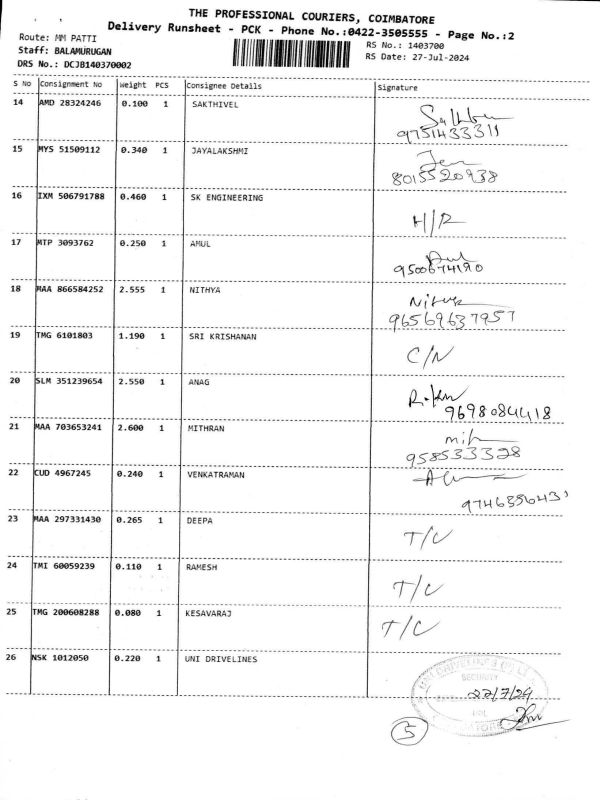 THE PROFESSIONAL COURIERS, COIMBATORE
Delivery Runsheet - PCK - Phone No.:0422-3505555 - Page No.:2
Route: MM PATTI
RS No.: 1403700
Staff: BALAMURUGAN
RS Date: 27-Jul-2024
DRS No.: DCJB140370002
S No Consignment No Weight PCS Consignee Details Signature
14 AMD 28324246 0.100 1 SAKTHIVEL
9751433311
15 MYS 51509112 0.340 1 JAYALAKSHMI
8015520938
16 IXM 506791788 0.460 1 SK ENGINEERING
H/R
17 MTP 3093762 0.250 1 AMUL
9500674190
18 MAA 866584252 2.555 1 NITHYA
96569637957
19 TMG 6101803 1.190 1 SRI KRISHANAN
C/N
20 SLM 351239654 2.550 1 ANAG
9698084418
21 MAA 703653241 2.600 1 MITHRAN
958533328
22 CUD 4967245 0.240 1 VENKATRAMAN
23 MAA 297331430 0.265 1 DEEPA
T/C
24 TMI 60059239 0.110 1 RAMESH
T/C
25 TMG 200608288 0.080 1 KESAVARAJ
T/C
26 NSK 1012050 0.220 1 UNI DRIVELINES
SECURITY
27/7/24
5